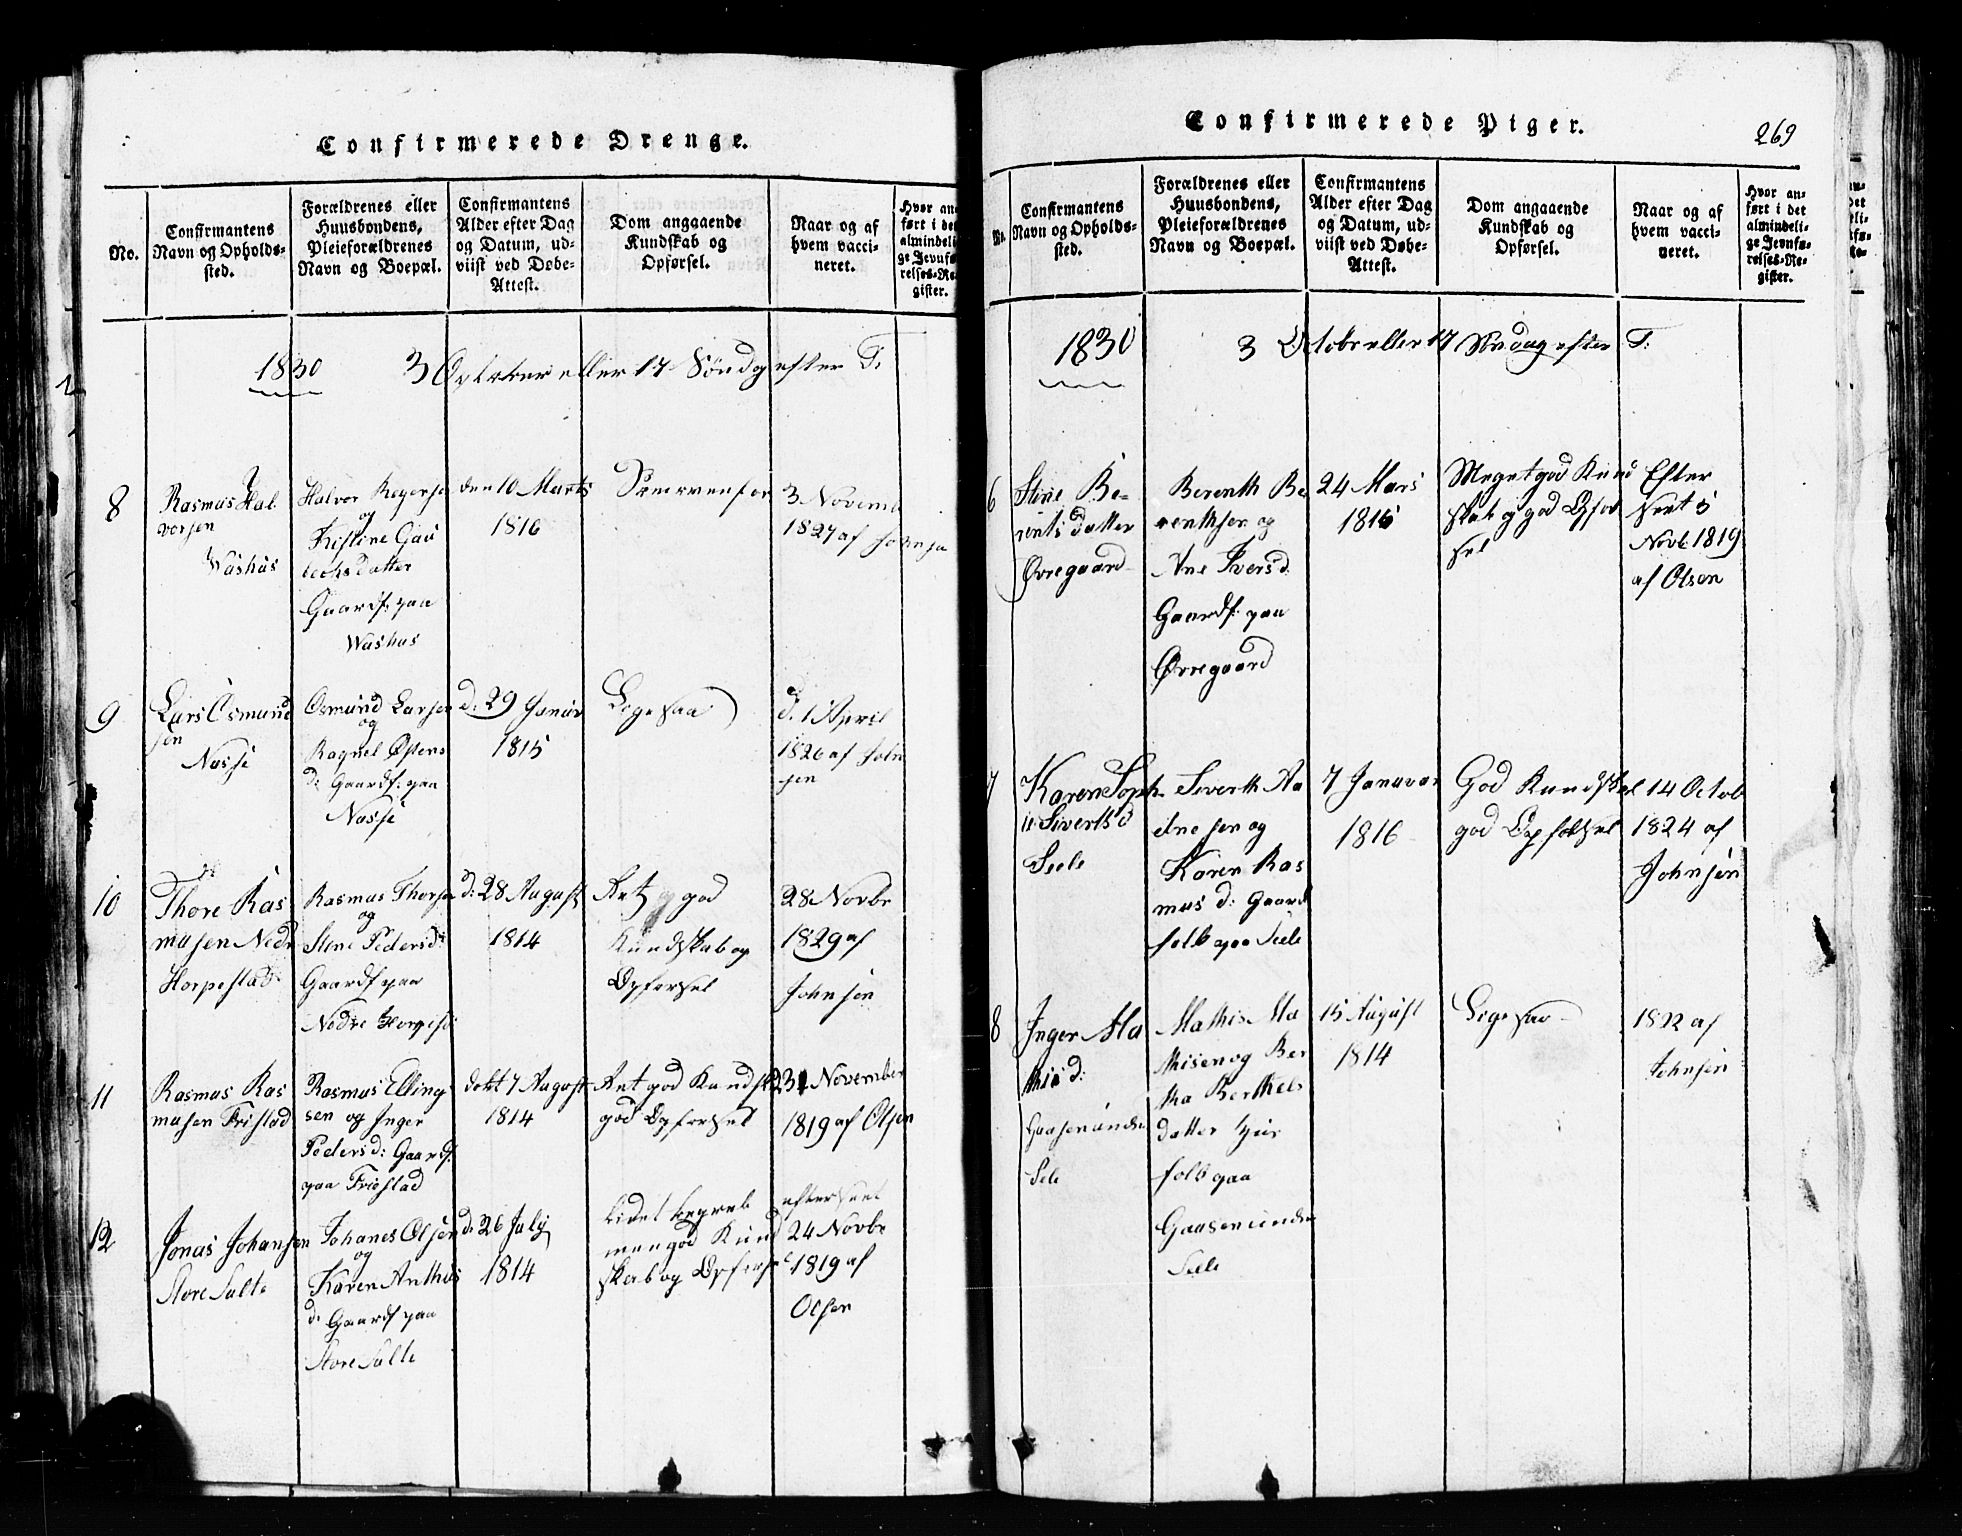 Confirmerede Drenge.
No.
Confirmantens
Navn og Opholds-
sted.
Forældrenes eller
Huusbondens,
Pleieforældrenes
Navn og Boepæl.
Confirmantens
Alder efter Dag
og Datum, ud-
viist ved Døbe-
Attest.
Dom angaaende
Kundskab og
Opførsel.
Naar og af
hvem vacci-
neret.
Hvor an-
ført i det
almindeli-
ge Jevnfø-
relses-Re-
gister.
1830 3 October eller 17 Søndg efter T:
8
Rasmus Hal
vorsen
Washus
Halvor Regersen
og
Kistine Gau
techsdatter
Gaardf: paa
Washus
den 10 Marts
1816
3 Novemb
1827 af Johnsen
9
Lars Osmund
sen
Nasse
Osmund Larsen
og
Ragnel Østens
d: Gaardf: paa
Nasse
d: 29 Januar
1815
Ligesaa
d. 1 April
1826 af John
sen
10
Thore Ras
musen Nedr
Horpestad
Rasmus Thorsen
og
Stene Pedersd:
Gaardf paa
Nedre Horpest
d: 28 August
1814
god
Kundskab og
Opførsel
28 Novbr
1829 af
Johnsen
11
Rasmus Ras
musen Fristad
Rasmus Elling
sen og Inger
Pedersd: Gaardf:
paa Friestad
7 August
1814
god Kundsk
god Opførsel
23 November
1819 af Olsen
12
Jonas Johansen
Store Salte
Johanes Olsen
og
Karen Anthus
d: Gaardf paa
Store Salte
d: 26 July
1814
Lidet begreb
men god Kund
skab og Opførsel
efterseet
24 Novbr
1819 af
Olsen
Confirmerede Piger.
269
Nr.
Confirmantens
Navn og Opholds-
sted.
Forældrenes eller
Huusbondens,
Pleieforældrenes
Navn og Boepæl.
Confirmantens
Alder efter Dag
og Datum, ud-
viist ved Døbe-
Attest.
Dom angaaende
Kundskab og
Opførsel.
Naar og af
hvem vacci-
neret.
Hvor an-
ført i det
almindeli-
ge Jevnfø-
relses-Re-
gister.
1830 3 Octobr eller 17 Søndag efter T:
6
Stine Be-
rentsdatter
Øvregaard
Berenth Be
renthsen og
Ane Iversd
Gaardf: paa
Øvregaard
24 Mars
1815
Meget god Kund
skab og god Opfør
sel
Efter
seet 5
Novb 1819
af Olsen
7
Karen Soph
ie Siverthsd
Seele
Siverth Aa
dnesen og
Karen Ras
musd: Gaard
folk paa Seele
7 Januar
1816
God Kundskab
god Opførsel
14 Octob
1824 af
Johnsen
8
Inger Ma
this d:
Gaasemunds
Sele
Mathis Ma
thisen og Ber
tha Berthels
datter
folk paa
Gaasemunds
Seele
15 August
1814
Ligesaa
1822 af
Johnsen